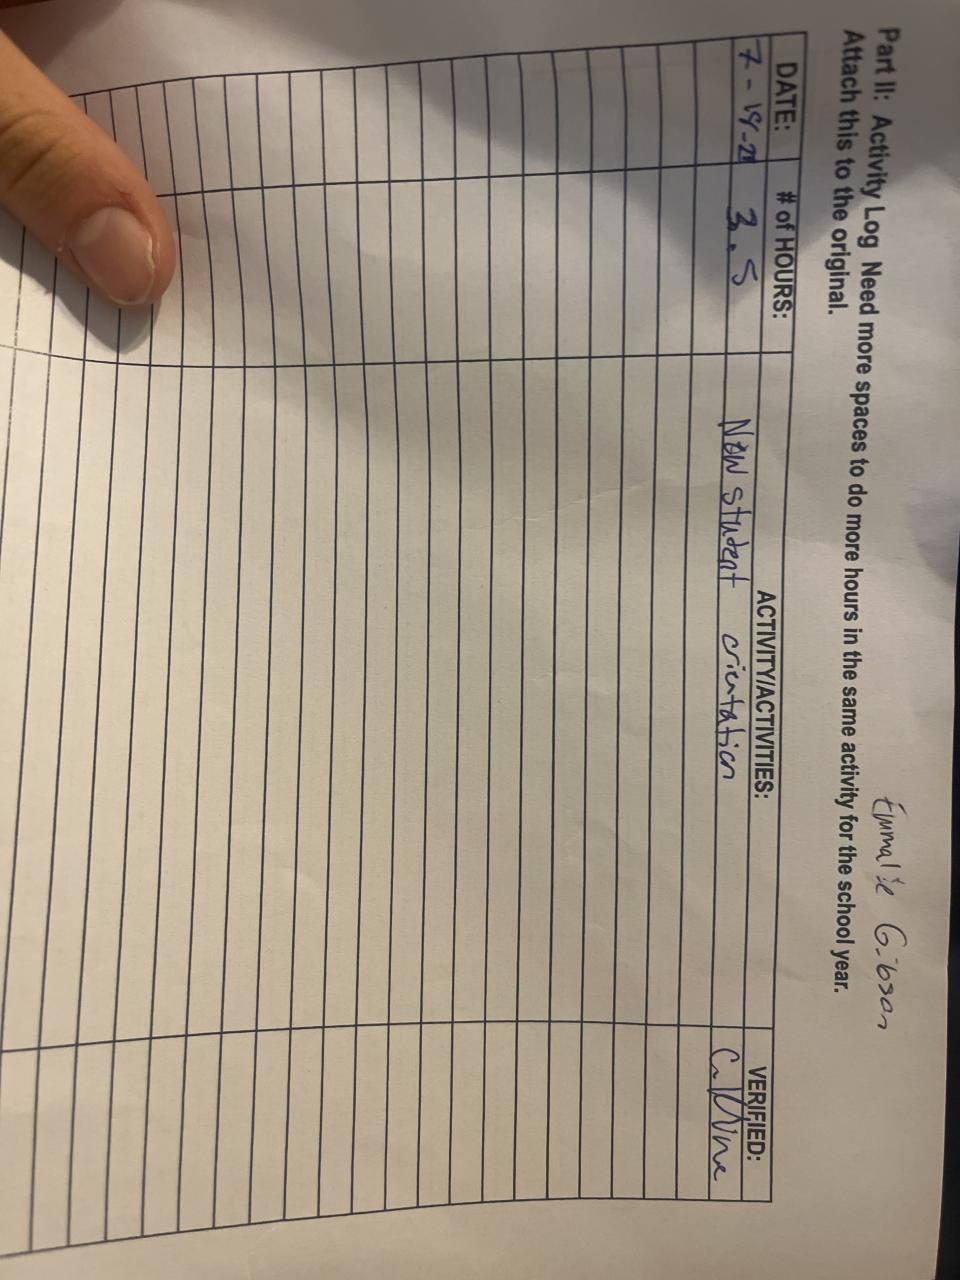 Emmalie Gibson
Part II: Activity Log Need more spaces to do more hours in the same activity for the school year.
Attach this to the original.
DATE: # of HOURS: ACTIVITY/ACTIVITIES: VERIFIED:
7-19-21 3.5 New student orientation